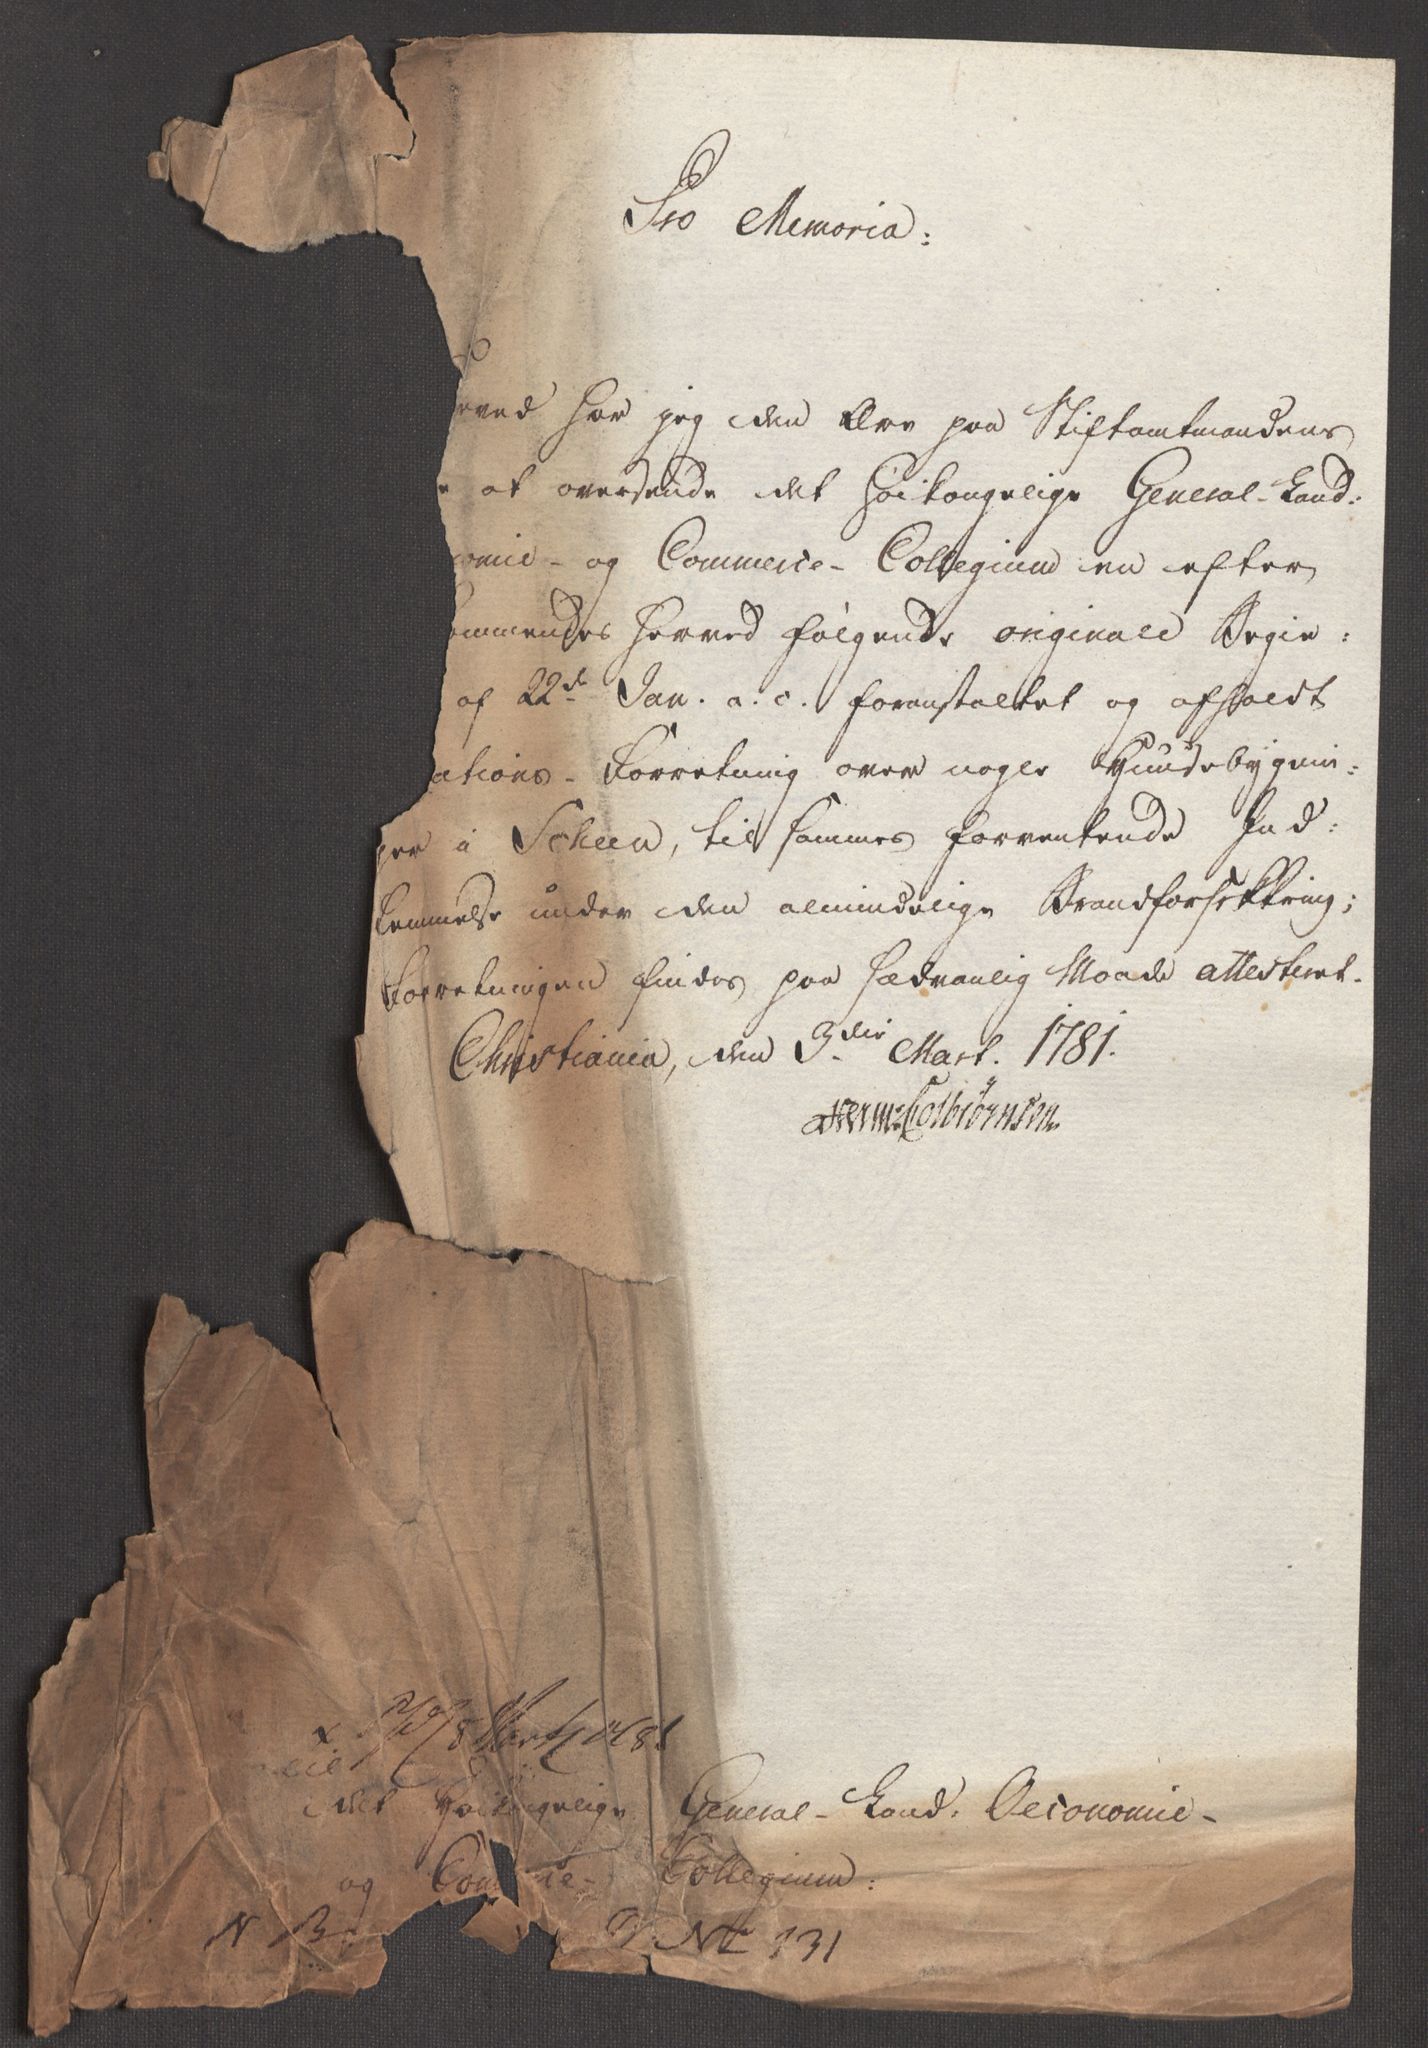 Pro Memoria:
erved har jeg den Ære paa Stiftamtmandens
e at oversende det höikongelige General-Land:
omie- og Commerce-Collegium en efter
ommendes herved fölgende originale Begie:
af 22de Jan. a. c. foranstaltet og afholdt
ations-Forretning over nogle Huusebygnin:
ger i Scheen, til sammes forventende Ind:
lemmelse under den almindelige Brandforsikkring;
Forretningen findes paa sædvanlig Maade attesteret.
Christiania, den 3die Mart. 1781.
Herm: Colbiörnsen
8 Martz 1781
det Höikongelige General-Land-Oeconomie-
og Com ce-Collegium:
N B: No 131